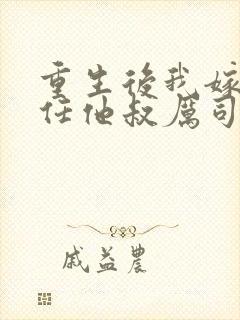 重生後我嫁
任他叔厲司
戚益農